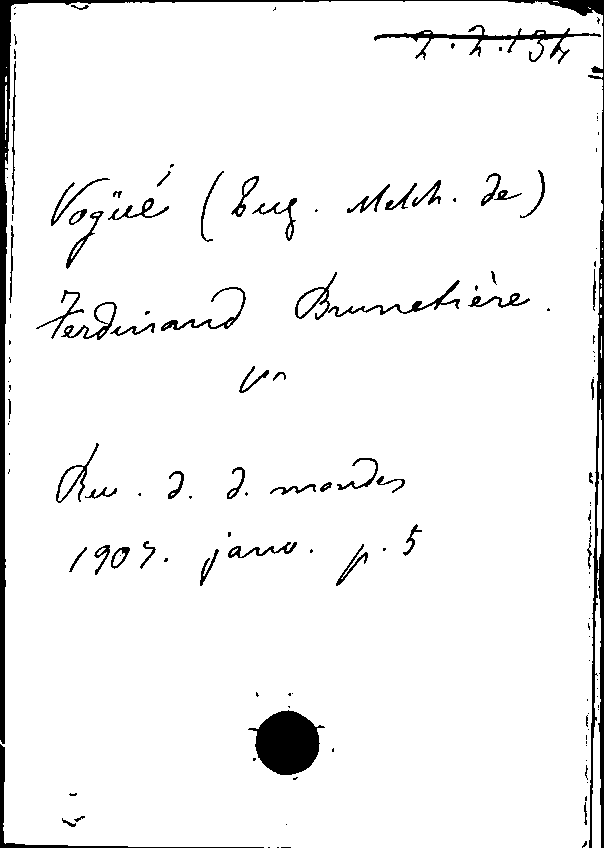 2.2.134
Vogüé (Eug. Melch. de)
Ferdinand Brunetière.
Rev. d. d. mondes
1907. janv. p. 5